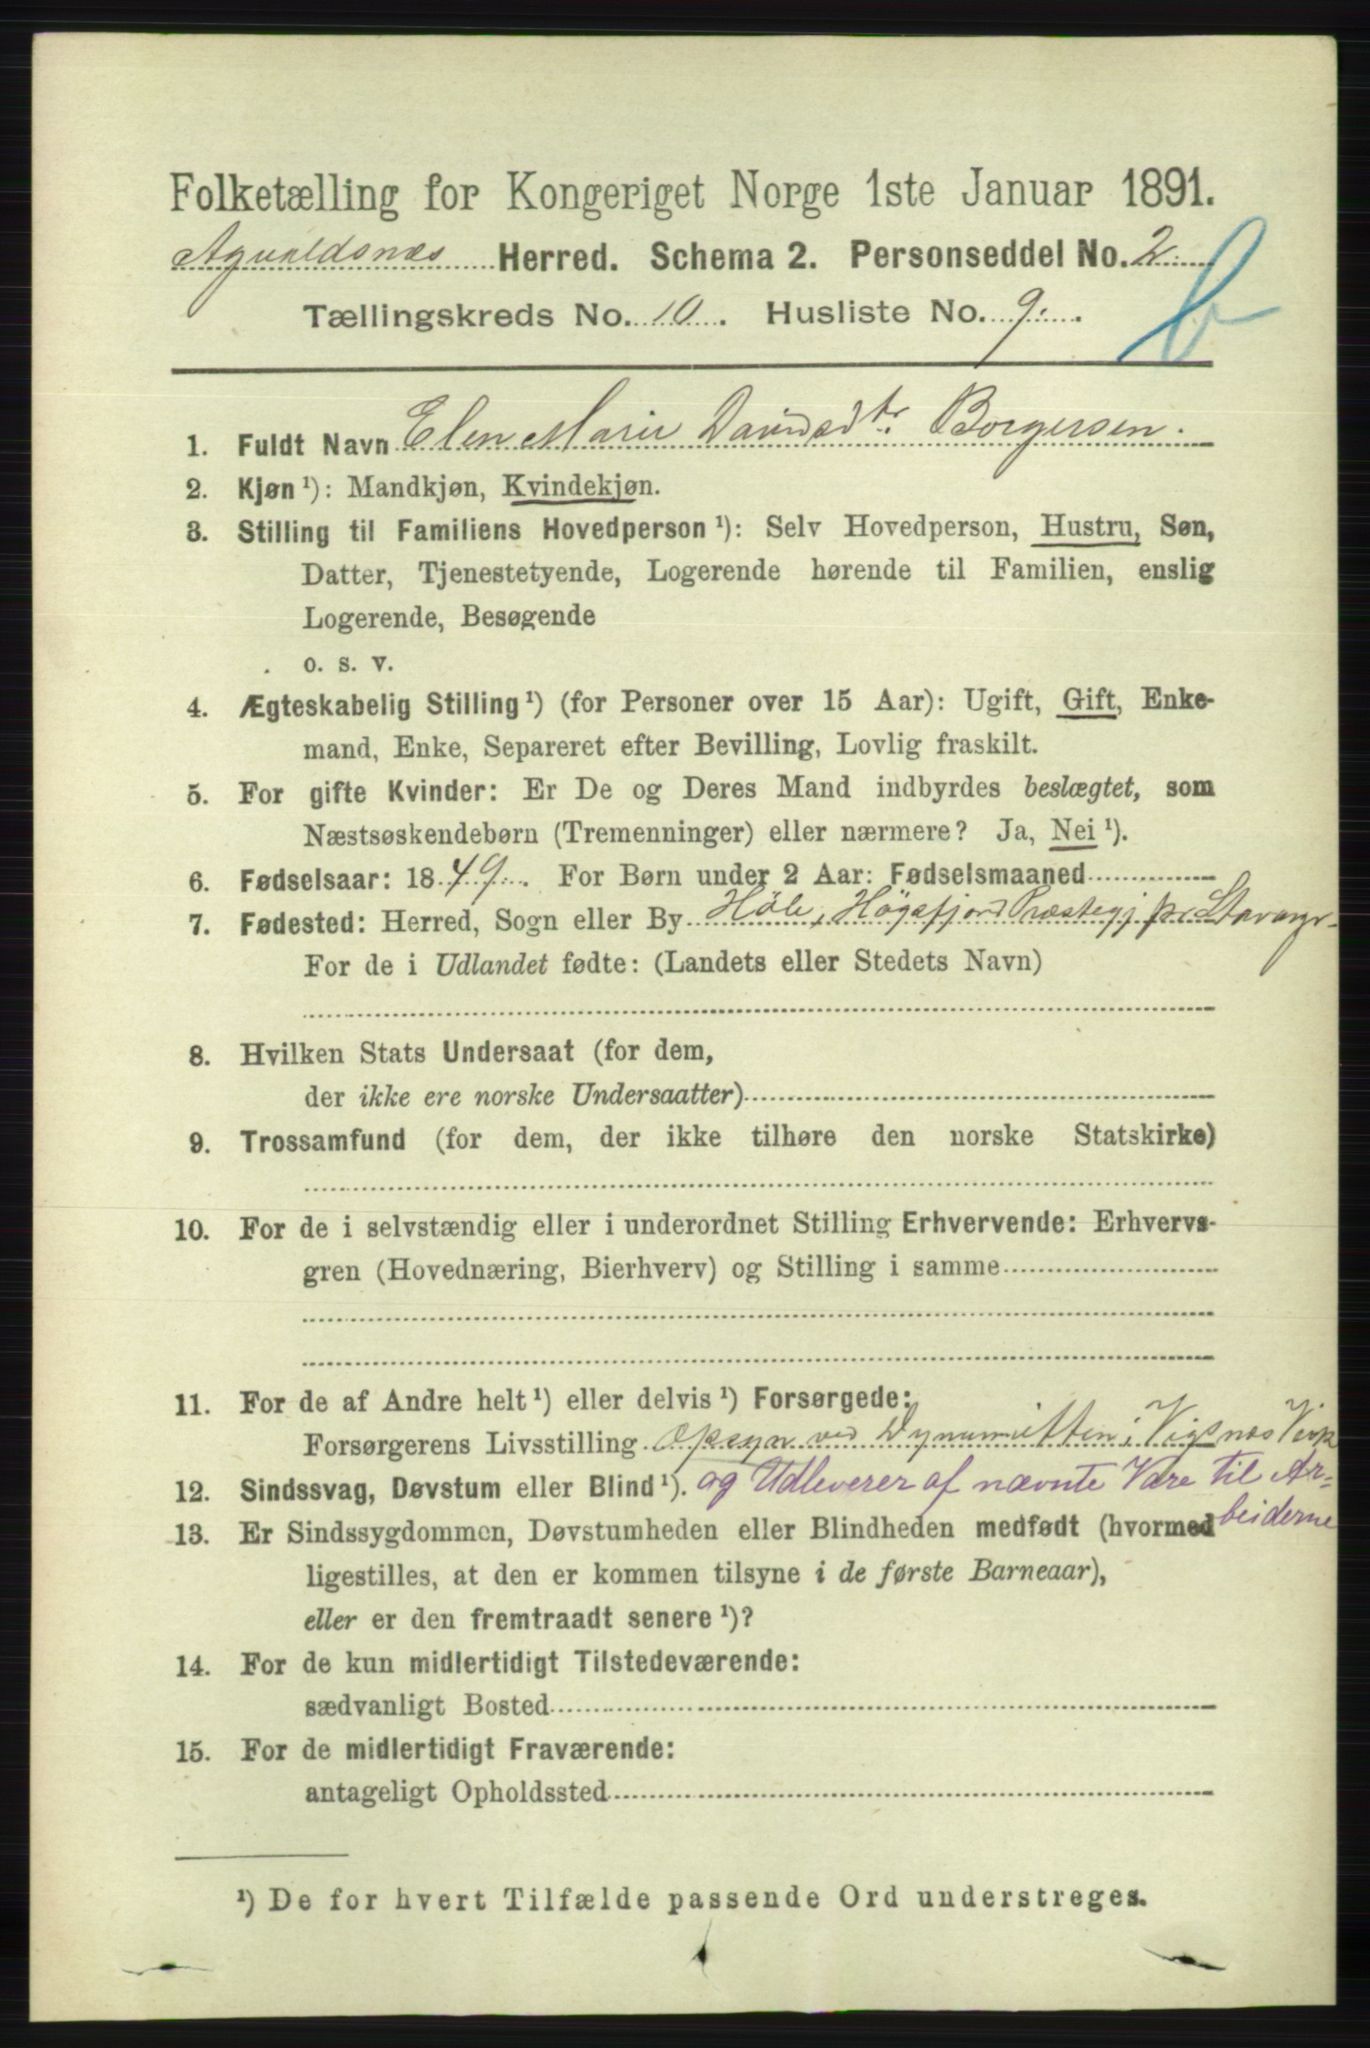 Folketælling for Kongeriget Norge 1ste Januar 1891.
Agvaldsnæs Herred. Schema 2. Personseddel No. 2
Tællingskreds No. 10. Husliste No. 9.
1. Fuldt Navn Elen Marie Davidsdtr. Borgersen.
2. Kjøn ¹): Mandkjøn, Kvindekjøn.
3. Stilling til Familiens Hovedperson ¹): Selv Hovedperson, Hustru, Søn,
Datter, Tjenestetyende, Logerende hørende til Familien, enslig
Logerende, Besøgende
o. s. v.
4. Ægteskabelig Stilling ¹) (for Personer over 15 Aar): Ugift, Gift, Enke-
mand, Enke, Separeret efter Bevilling, Lovlig fraskilt.
5. For gifte Kvinder: Er De og Deres Mand indbyrdes beslægtet, som
Næstsøskendebørn (Tremenninger) eller nærmere? Ja, Nei ¹).
6. Fødselsaar: 1849. For Børn under 2 Aar: Fødselsmaaned
7. Fødested: Herred, Sogn eller By Höle, Högsfjord Præstegj pr Stavanger
For de i Udlandet fødte: (Landets eller Stedets Navn)
8. Hvilken Stats Undersaat (for dem,
der ikke ere norske Undersaatter)
9. Trossamfund (for dem, der ikke tilhøre den norske Statskirke)
10. For de i selvstændig eller i underordnet Stilling Erhvervende: Erhvervs-
gren (Hovednæring, Bierhverv) og Stilling i samme
11. For de af Andre helt ¹) eller delvis ¹) Forsørgede:
Forsørgerens Livsstilling opsyn ved Dynamitten i Vigsnæs Værk
12. Sindssvag, Døvstum eller Blind ¹). og Udleverer af nævnte Vare til Ar-
beiderne
13. Er Sindssygdommen, Døvstumheden eller Blindheden medfødt (hvormed
ligestilles, at den er kommen tilsyne i de første Barneaar),
eller er den fremtraadt senere ¹)?
14. For de kun midlertidigt Tilstedeværende:
sædvanligt Bosted
15. For de midlertidigt Fraværende:
antageligt Opholdssted
¹) De for hvert Tilfælde passende Ord understreges.